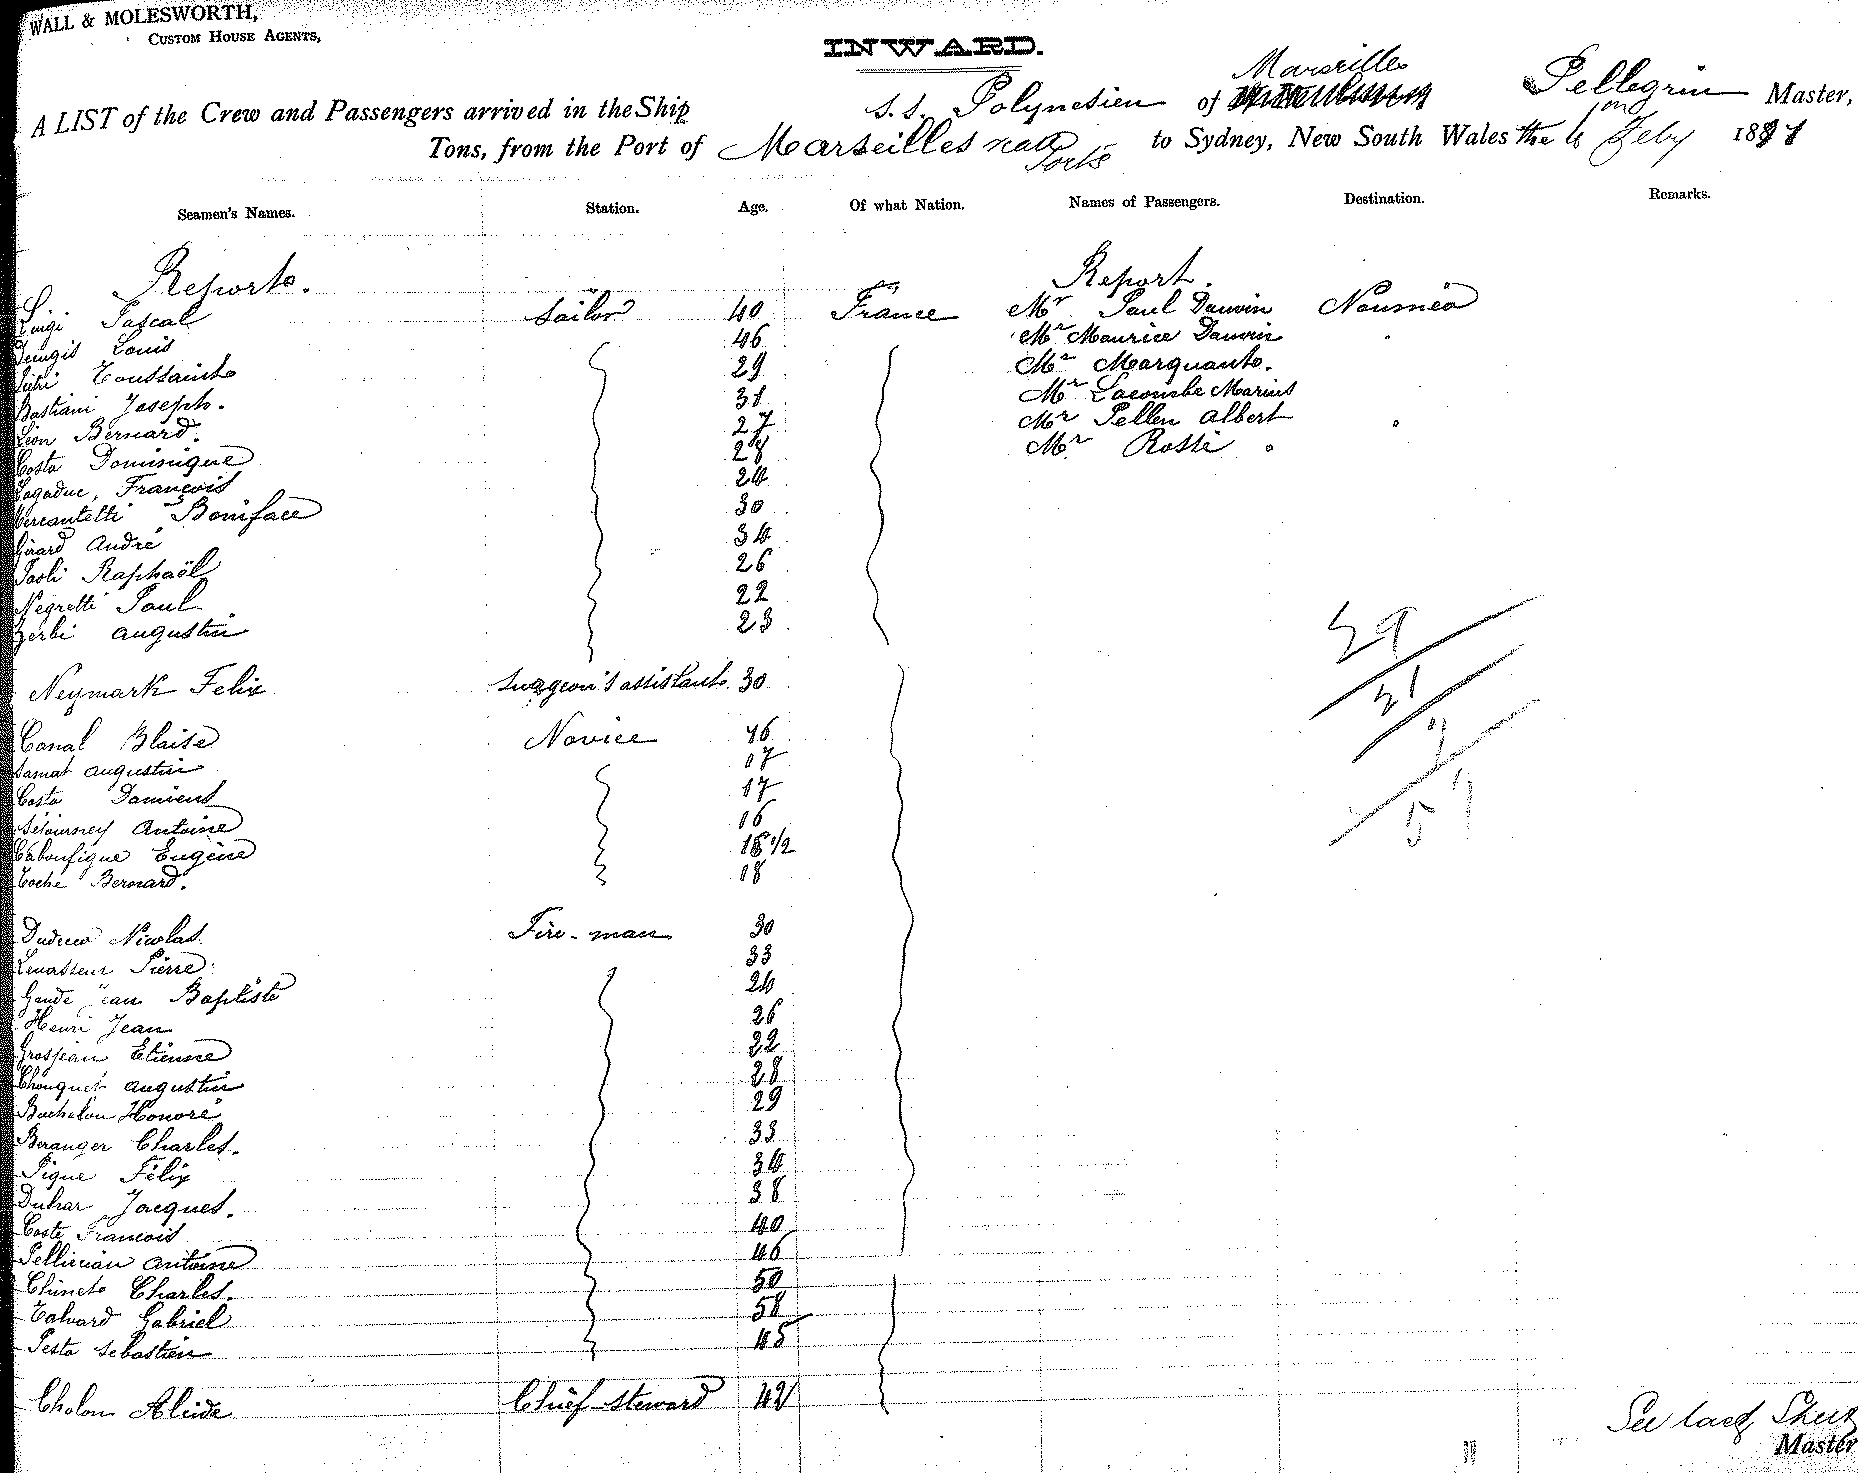 WALL & MOLESWORTH,
CUSTOM HOUSE AGENTS,
INWARD.
Marseilles
A LIST of the Crew and Passengers arrived in the Ship s.s. Polynesien of Pellegrin Master,
Tons, from the Port of Marseilles via Ports to Sydney, New South Wales the 6 Feby 1891
Seamen's Names. Station. Age. Of what Nation. Names of Passengers. Destination. Remarks.
Reports. Report.
Luigi Pascal Sailor 40 France Mr Paul Dauvin Nouméa
Louis 46 Mr Maurice Dauvin
Toussaint 29 Mr Marquants.
Bastiani Joseph. 31 Mr Lacombe Marius
Léon Bernard. 27 Mr Pellen Albert
Costa Dominique 28 Mr Rossi
Lagadue, François 24
Mercantetti Boniface 30
Girard André 34
Paoli Raphaël 26
Negretti Paul 22
Zerbi Augustin 23
Neymark Felix Surgeon's assistant 30
Canal Blaise Novice 46
Samat Augustin 17
Costa Damient 17
Séjourney Antoine 16
Caboufigue Eugène 18 1/2
Toche Bernard. 18
Nicolas Fire-man 30
Levasseur Pierre 33
Gande Jean Baptiste 24
Henri Jean 26
Grosjean Etienne 22
Chouquet Augustin 28
Bachelou Honoré 29
Beranger Charles. 33
Pique Félix 34
Duhar Jacques. 38
Coste François 40
Antoine 46
Charles. 50
Talvard Gabriel 58
Testa Sebastien 45
Cholon Alcide Chief-steward 42
39
21
57
See last Sheet
Master